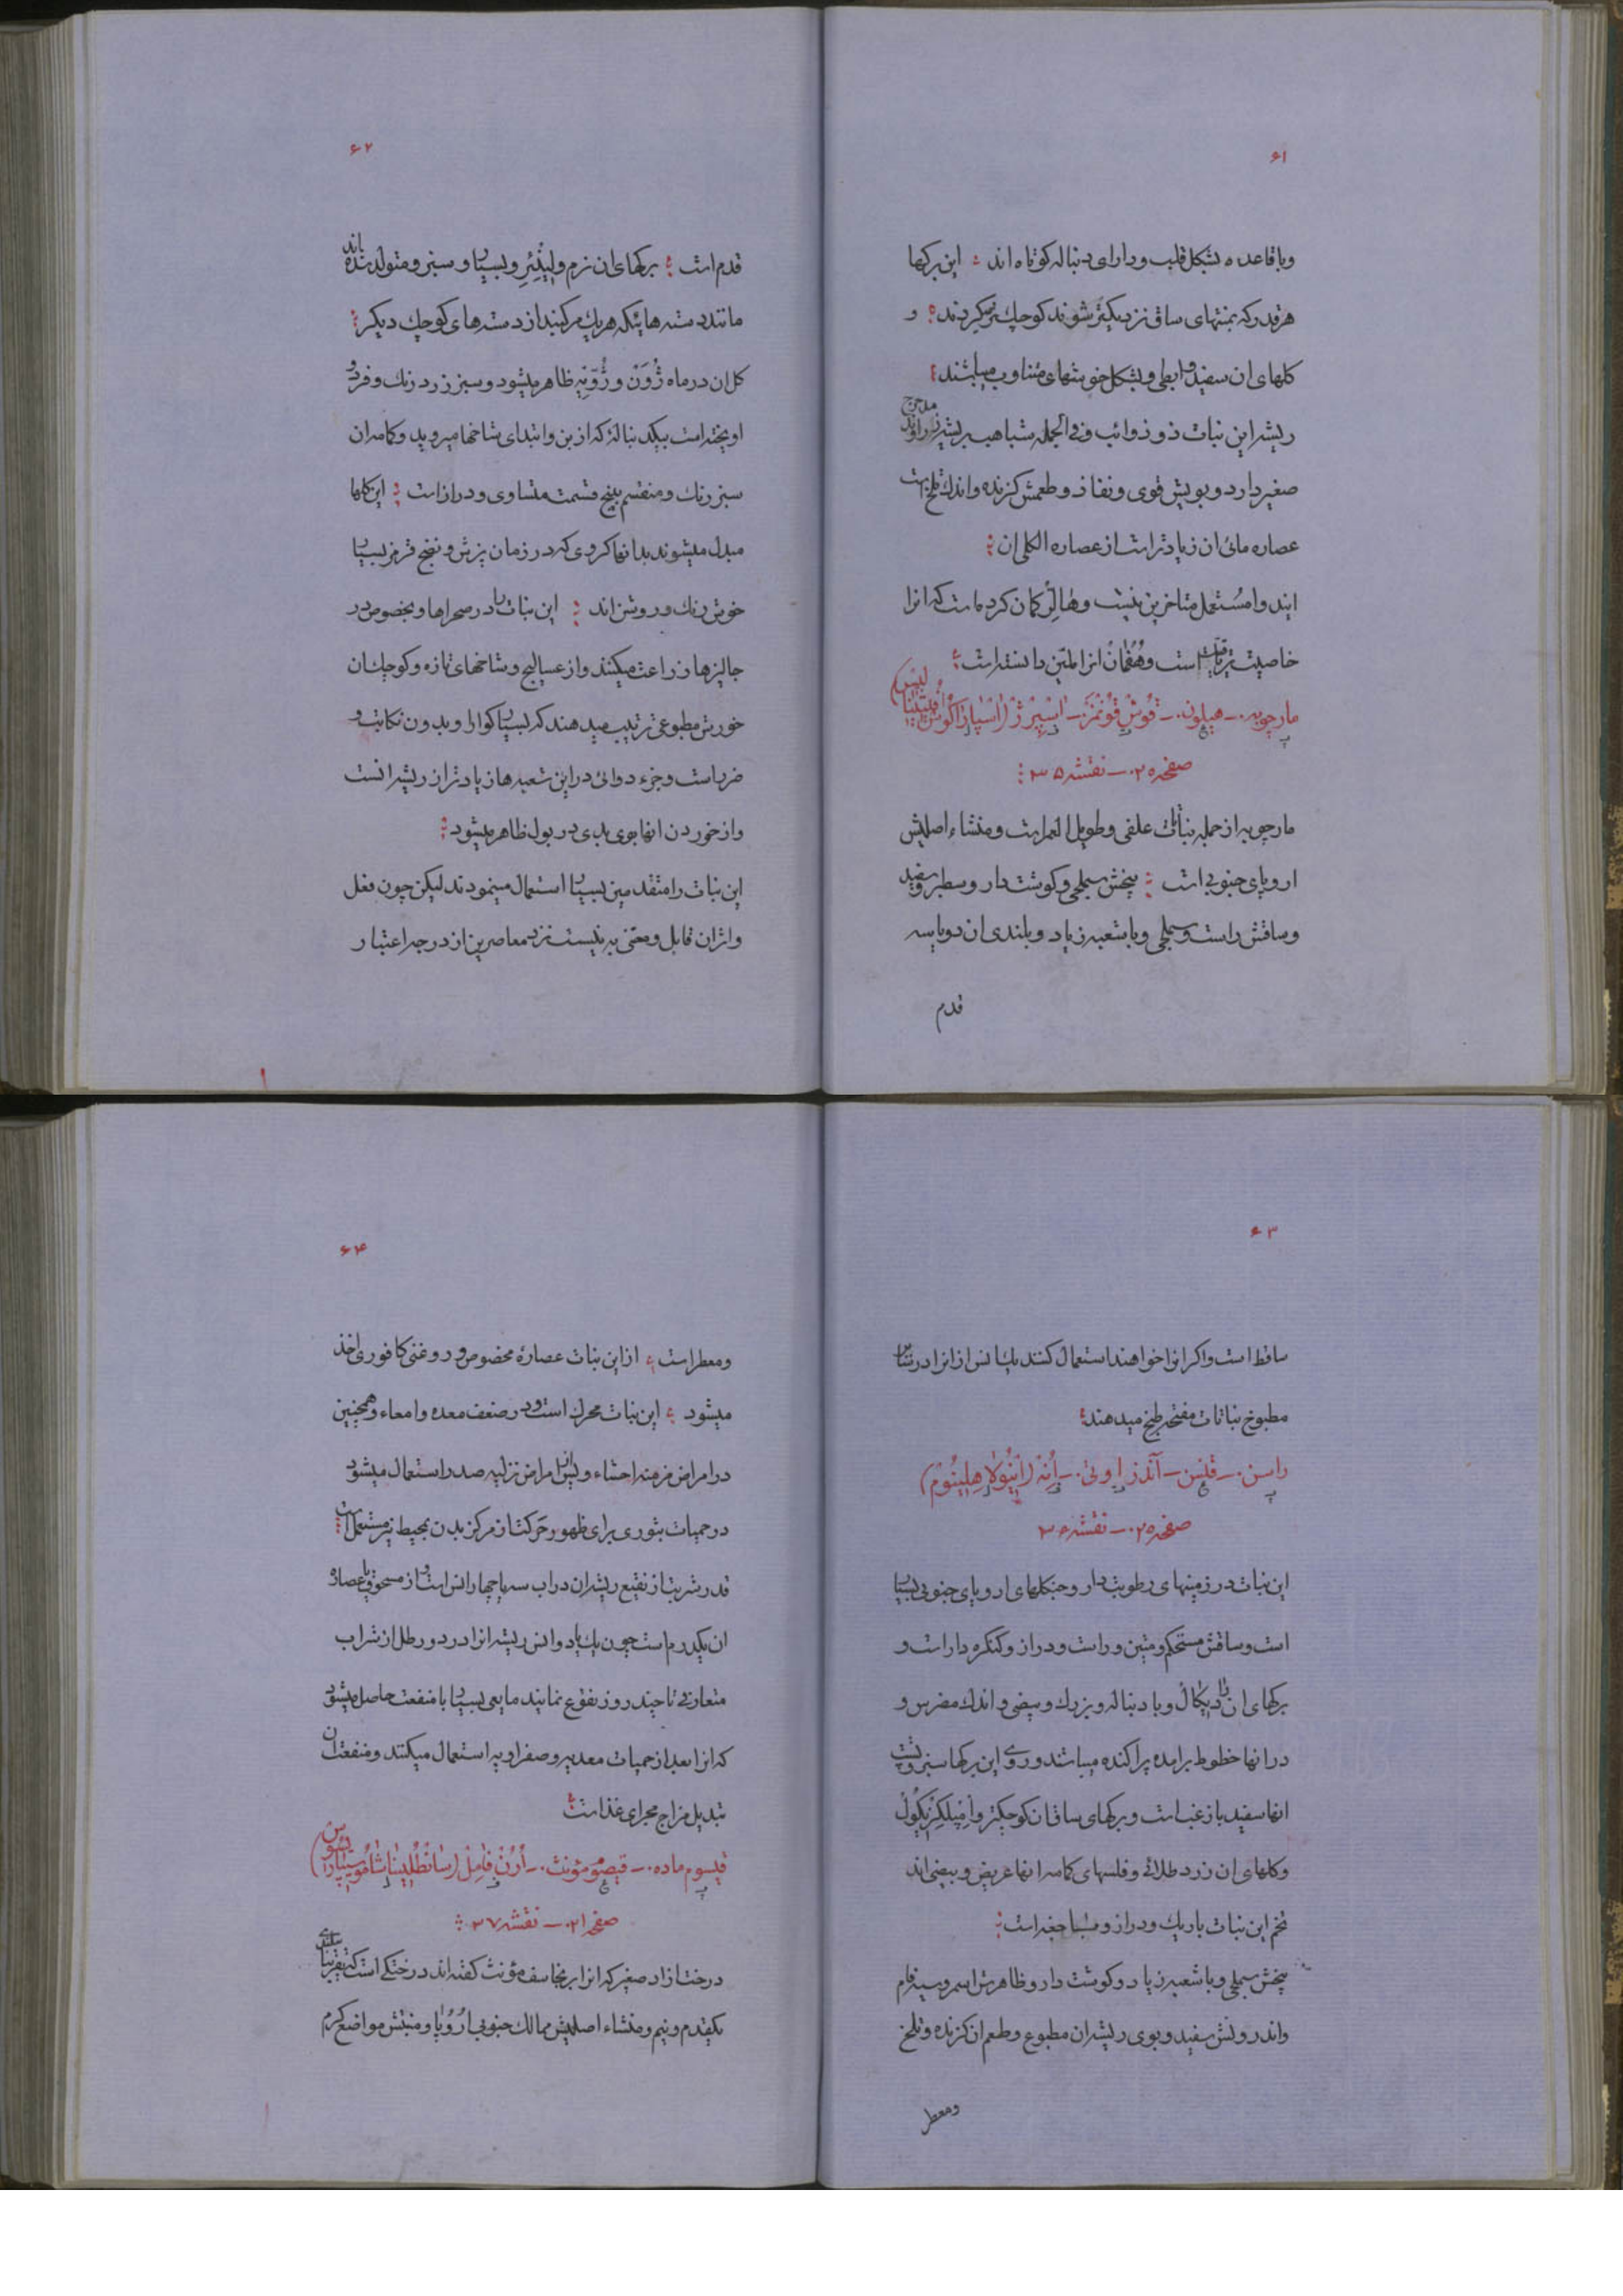 ۶۱
وباقاعده بشکل قلب ودارای دنباله کوتاه اند : این برکها
هرقدر که بمنتهای ساق نزدیکتر شوند کوچکتر میکردند : و
کلهای ان سفید وابطی وبشکل خوشهای متناوب میباشند :
ریشه این نبات ذوذوائب وفی الجمله شباهت بریشه زراوند مدحرج
صغیر دارد وبویش قوی ونفاذ وطعمش کزنده واندک تلخ است
عصاره مائی ان زیادتر است از عصاره الکلی ان :
ایندوا مستعمل متاخرین نیست وهالر کمان کرده است که انرا
خاصیت تریاقیت است وهفمان انرا ملین دانسته است :
مارچوبه - هیلون - قوش قونمز - اسپرژ (اسپاراکوس افیسینالیس)
صفحه ۲۰ - نقشه ۳۵ :
مارچوبه از جمله نباتات علفی وطویل العمر است ومنشاء اصلیش
اروپای جنوبی است : بیخش سهلجی وکوشت دار وسطبر وسفید
وساقش راست وسهلجی وباشعبه زیاد وبلندی ان دو یا سه
قدم
۶۲
قدم است : برکهای ان نرم ولینئر وبسیار وسبز ومتولد شده اند
مانند دسته هائیکه هریک مرکبند از دسته های کوچک دیکر :
کل ان در ماه ژون وژویه ظاهر میشود وسبز زرد رنک وفرد و
اویخته است بیکدنباله که از بن وابتدای شاخها میروید وکاسه ان
سبز رنک ومنقسم به پنج قسمت متساوی ودراز است : این کلها
مبدل میشوند بدانهاکروی که در زمان پزش ونضج قرمز بسیار
خوش رنک وروشن اند : این نبات را در صحراها وبخصوص در
جالیزها زراعت میکنند واز عسالیج وشاخهای تازه وکوچک ان
خورش مطبوعی ترتیب میدهند که بسیار کوارا وبدون نکایت و
ضرر است وجزء دوائی در این شعبه ها زیادتر از ریشه انست
واز خوردن انها بوی بدی در بول ظاهر میشود :
این نبات را متقدمین بسیار استعمال مینمودند لیکن چون فعل
واثر ان قابل ومعتنی به نیست نزد معاصرین از درجه اعتبار
۶۳
ساقط است واکر انرا خواهند استعمال کنند یک انس از انرا در شش
مطبوخ نباتات مفتحه طبخ میدهند :
راسن - قنس - آندز اوتی - اُنه (اینولا هلینوم)
صفحه ۲۰ - نقشه ۳۶
این نبات در زمینهای رطوبت دار وجنکلهای اروپای جنوبی بسیار
است وساقش مستحکم ومتین وراست ودراز وکنکره دار است و
برکهای ان رادیکال وبا دنباله وبزرک وبیضی واندک مضرس و
در انها خطوط برامده پراکنده میباشند وروی این برکها سبز وپشت
انها سفید باز غب است وبرکهای ساق ان کوچکتر وامپلکزیکول
وکلهای ان زرد طلائی وفلسهای کاسه انها عریض وبیضی اند
تخم این نبات باریک ودراز وبا جغه است :
بیخش سهلجی وباشعبه زیاد وکوشت دار وظاهرش اسمر وسیه فام
واندرونش سفید وبوی ریشه ان مطبوع وطعم ان کزنده وتلخ
ومعطر
۶۴
ومعطر است : از این نبات عصاره مخصوص وروغنی کافوری اخذ
میشود : این نبات محرک است ودر ضعف معده وامعاء وهمچنین
در امراض مزمنه احشاء وبس امراض نزلیه صدر استعمال میشود
در حمیات بثوری برای ظهور حرکت از مرکز بدن بمحیط نیز مستعمل است :
قدر شربت از نقیع ریشه ان در اب سه یا چهار انس است واز مسحوق یا عصاره
ان یکدرم است چون یک یا دو انس ریشه انرا در دو رطل از شراب
متعارفی تا چند روز نقوع نمایند مایعی بسیار با منفعت حاصل میشود
که انرا بعد از حمیات معدیه وصفراویه استعمال میکنند ومنفعت ان
تبدیل مزاج مجرای غذا است :
قیسوم ماده - قیصوم مؤنث - اُرُن فامل (سانطلینا شاموسیپاریسوس)
صفحه ۲۱ - نقشه ۳۷ :
درخت ازاد صغیر که انرا برنجاسف مؤنث کفته اند درختکی است که تقریبا بلندی
یکقدم ونیم ومنشاء اصلیش ممالک جنوبی اروپا ومنبتش مواضع کرم